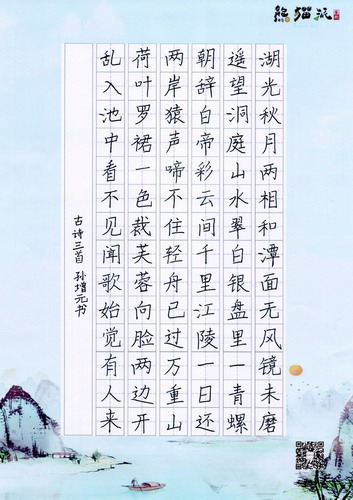 熊猫派
湖光秋月两相和潭面无风镜未磨
遥望洞庭山水翠白银盘里一青螺
朝辞白帝彩云间千里江陵一日还
两岸猿声啼不住轻舟已过万重山
荷叶罗裙一色裁芙蓉向脸两边开
乱入池中看不见闻歌始觉有人来
古诗三首 孙增元书